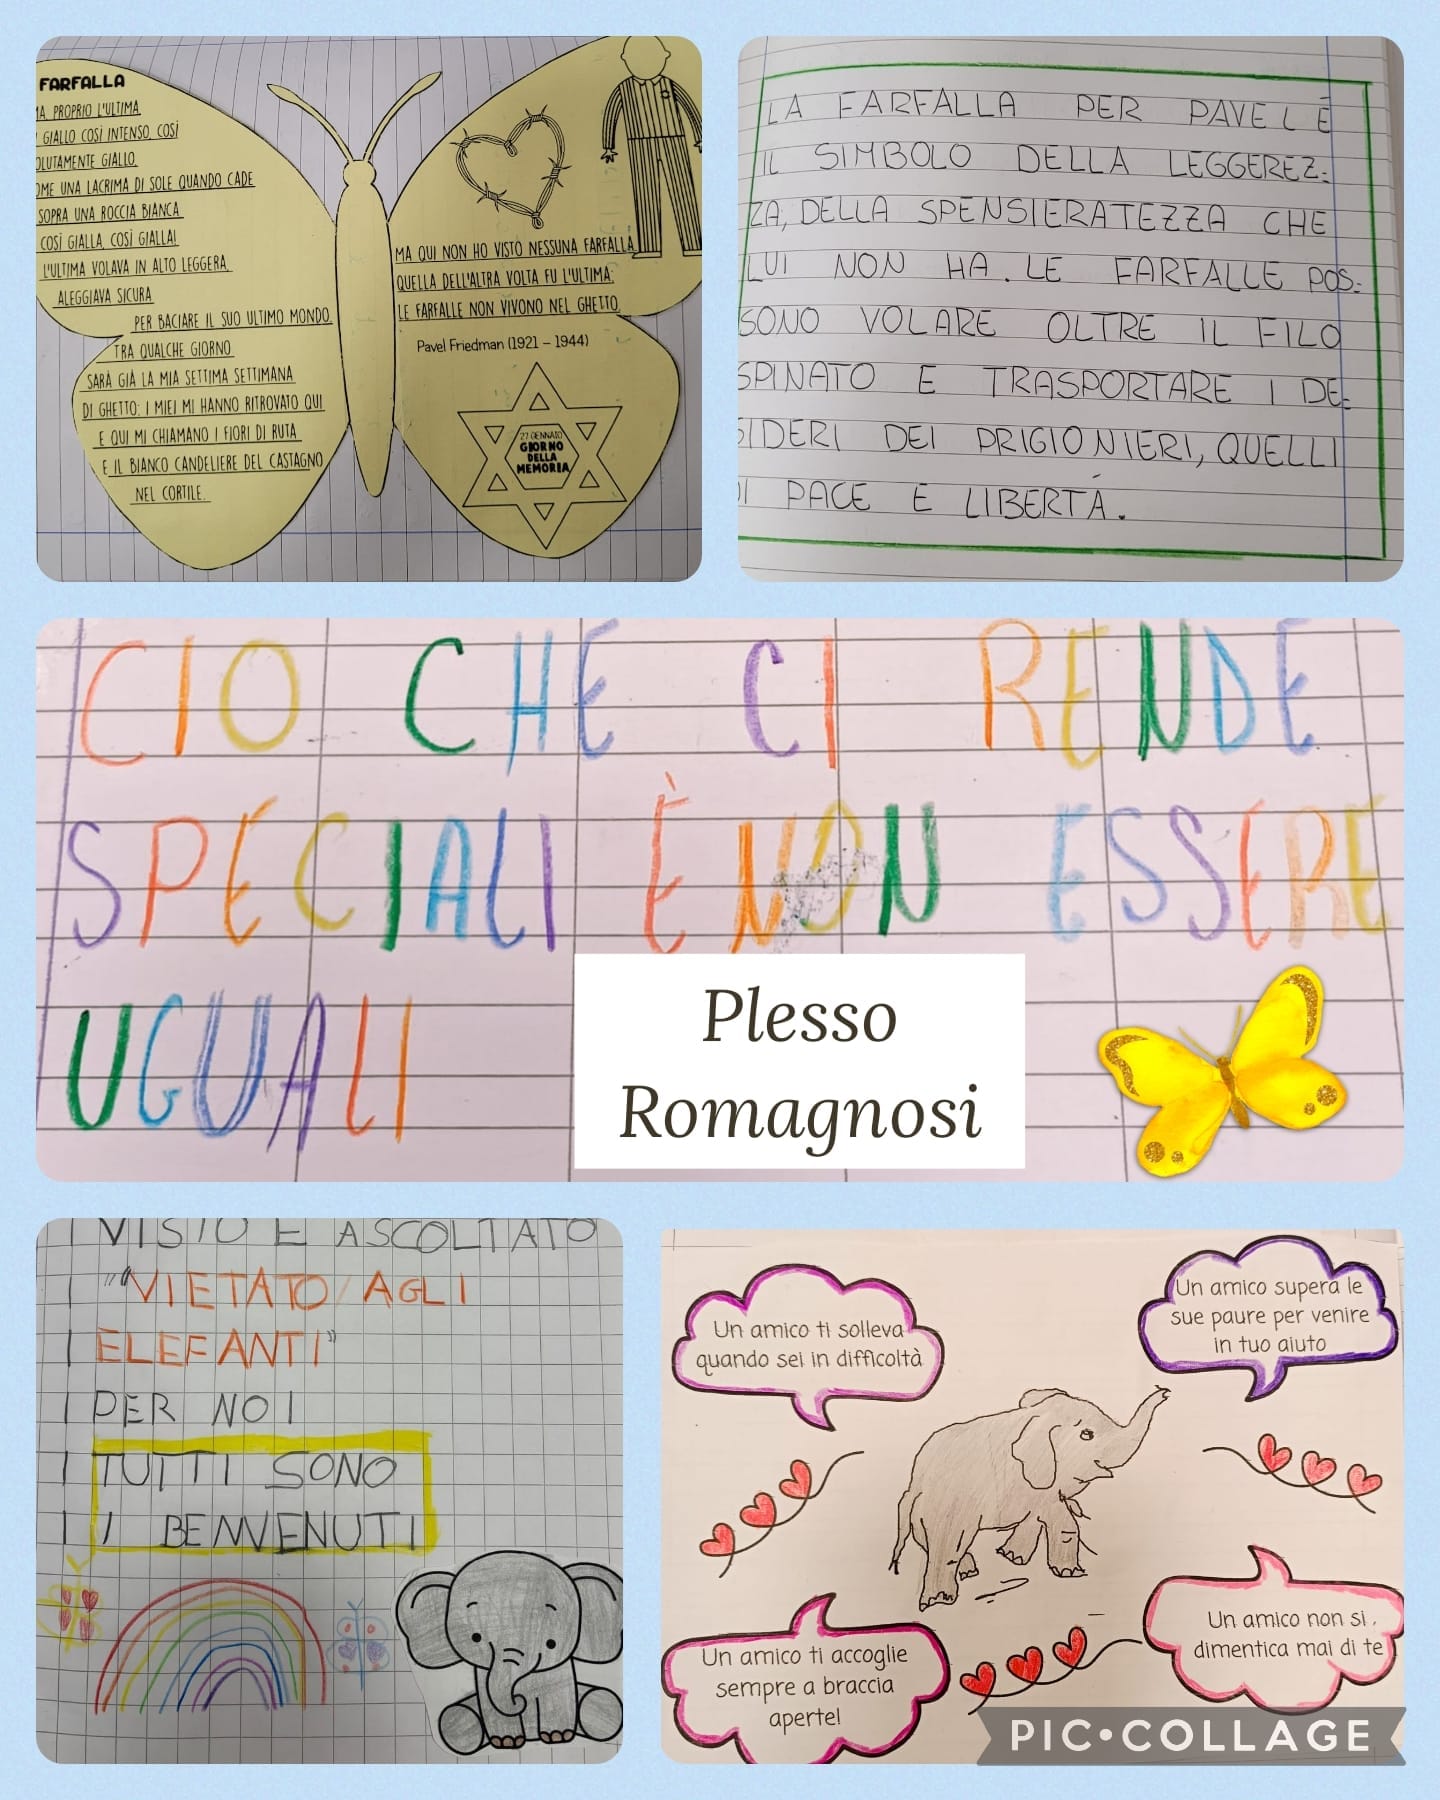 FARFALLA
PROPRIO L'ULTIMA
GIALLO COSÌ INTENSO, COSÌ
OLUTAMENTE GIALLO,
OME UNA LACRIMA DI SOLE QUANDO CADE
SOPRA UNA ROCCIA BIANCA
COSÌ GIALLA, COSÌ GIALLA!
L'ULTIMA VOLAVA IN ALTO LEGGERA,
ALEGGIAVA SICURA
PER BACIARE IL SUO ULTIMO MONDO.
TRA QUALCHE GIORNO
SARÀ GIÀ LA MIA SETTIMA SETTIMANA
DI GHETTO: I MIEI MI HANNO RITROVATO QUI
E QUI MI CHIAMANO I FIORI DI RUTA
E IL BIANCO CANDELIERE DEL CASTAGNO
NEL CORTILE.
MA QUI NON HO VISTO NESSUNA FARFALLA.
QUELLA DELL'ALTRA VOLTA FU L'ULTIMA:
LE FARFALLE NON VIVONO NEL GHETTO.
Pavel Friedman (1921 – 1944)
27 GENNAIO
GIORNO
DELLA
MEMORIA
LA FARFALLA PER PAVEL È
IL SIMBOLO DELLA LEGGEREZ=
ZA, DELLA SPENSIERATEZZA CHE
LUI NON HA. LE FARFALLE POS=
SONO VOLARE OLTRE IL FILO
SPINATO E TRASPORTARE I DE=
SIDERI DEI PRIGIONIERI, QUELLI
DI PACE E LIBERTÀ.
CIO CHE CI RENDE
SPECIALI È NON ESSERE
UGUALI
Plesso
Romagnosi
VISTO E ASCOLTATO
"VIETATO AGLI
ELEFANTI"
PER NOI
TUTTI SONO
I BENVENUTI
Un amico ti solleva
quando sei in difficoltà
Un amico supera le
sue paure per venire
in tuo aiuto
Un amico ti accoglie
sempre a braccia
aperte!
Un amico non si
dimentica mai di te
PIC•COLLAGE